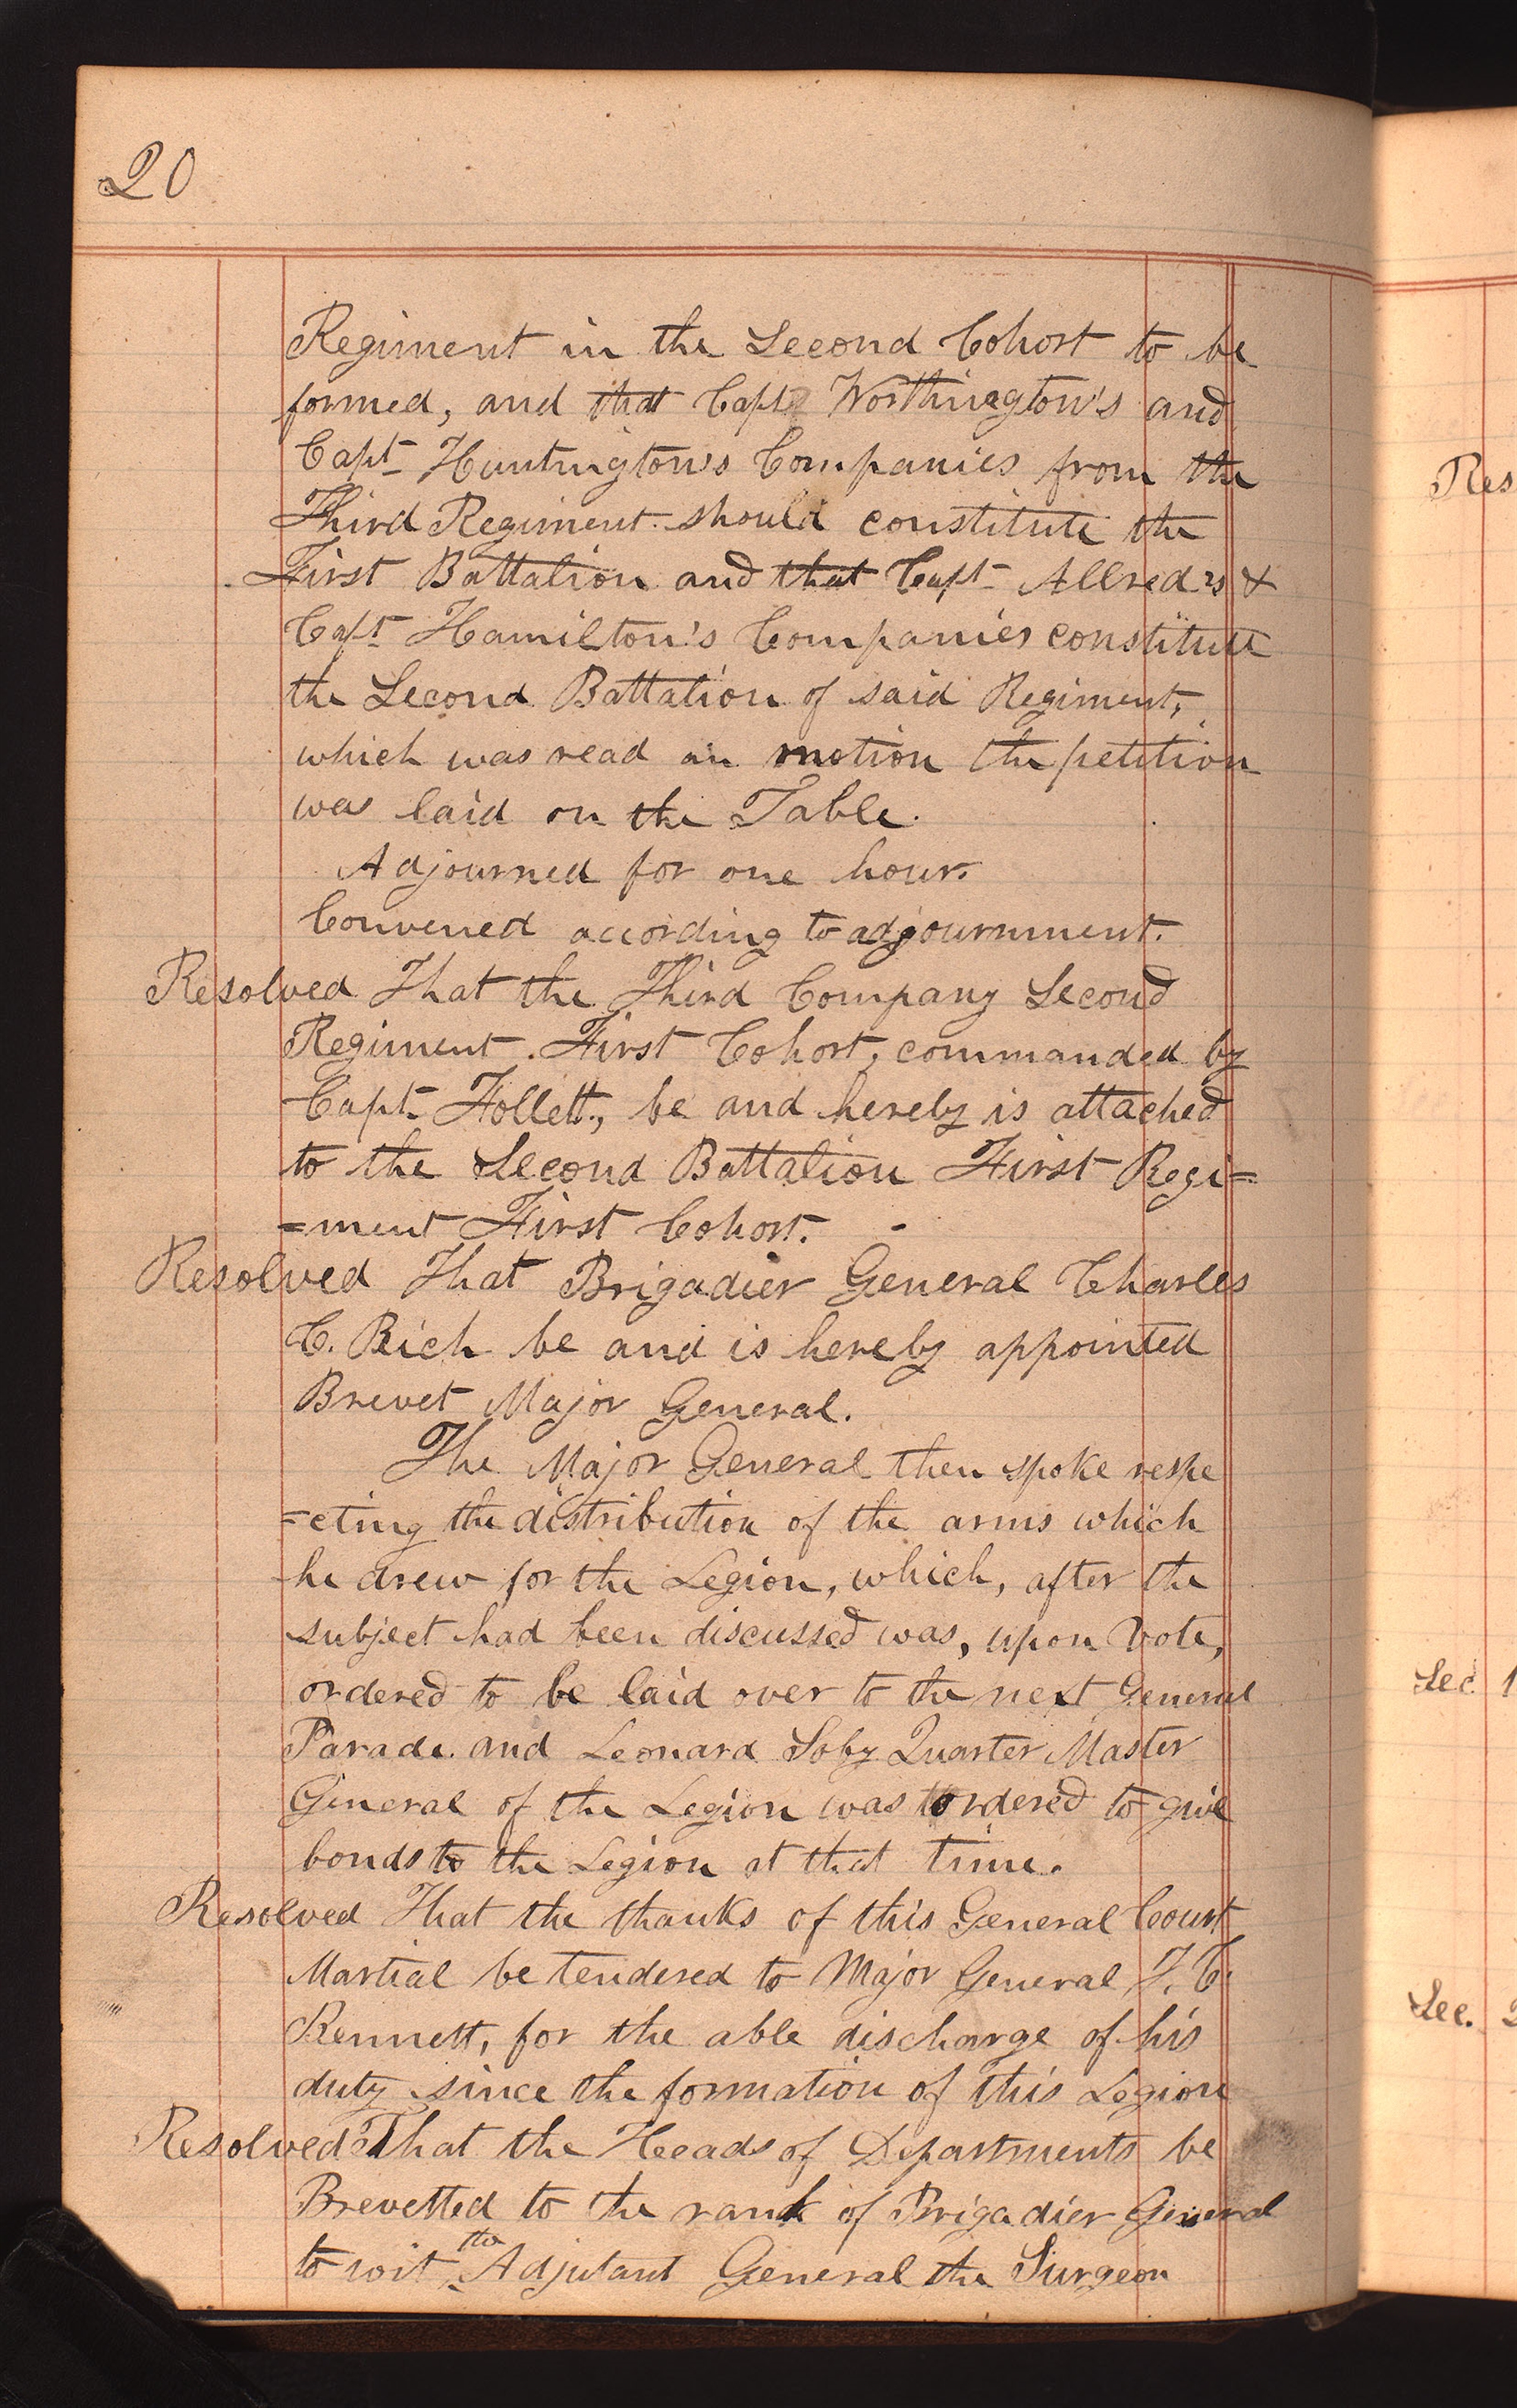 20
Regiment in the Second Cohort to be
formed, and that Capt Worthington's and
Capt Huntington's Companies from the
Third Regiment should constitute the
First Battalion and that Capt Allred's &
Capt Hamilton's Companies constitute
the Second Battalion of said Regiment,
which was read on motion the petition
was laid on the Table.
Adjourned for one hour.
Convened according to adjournment.
Resolved That the Third Company Second
Regiment. First Cohort, commanded by
Capt. Follett, be and hereby is attached
to the Second Battalion First Regi=
=ment First Cohort.
Resolved That Brigadier General Charles
C. Rich be and is hereby appointed
Brevet Major General.
The Major General then spoke respe
=cting the distribution of the arms which
he drew for the Legion, which, after the
subject had been discussed was, upon vote,
ordered to be laid over to the next General
Parade. and Leonard Soby Quarter Master
General of the Legion was ordered to give
bonds to the Legion at that time.
Resolved That the thanks of this General Court
Martial be tendered to Major General J. C.
Bennett, for the able discharge of his
duty since the formation of this Legion
Resolved That the Heads of Departments be
Brevetted to the rank of Brigadier General
to wit, the Adjutant General the Surgeon
Res
Sec. 1
Sec. 2